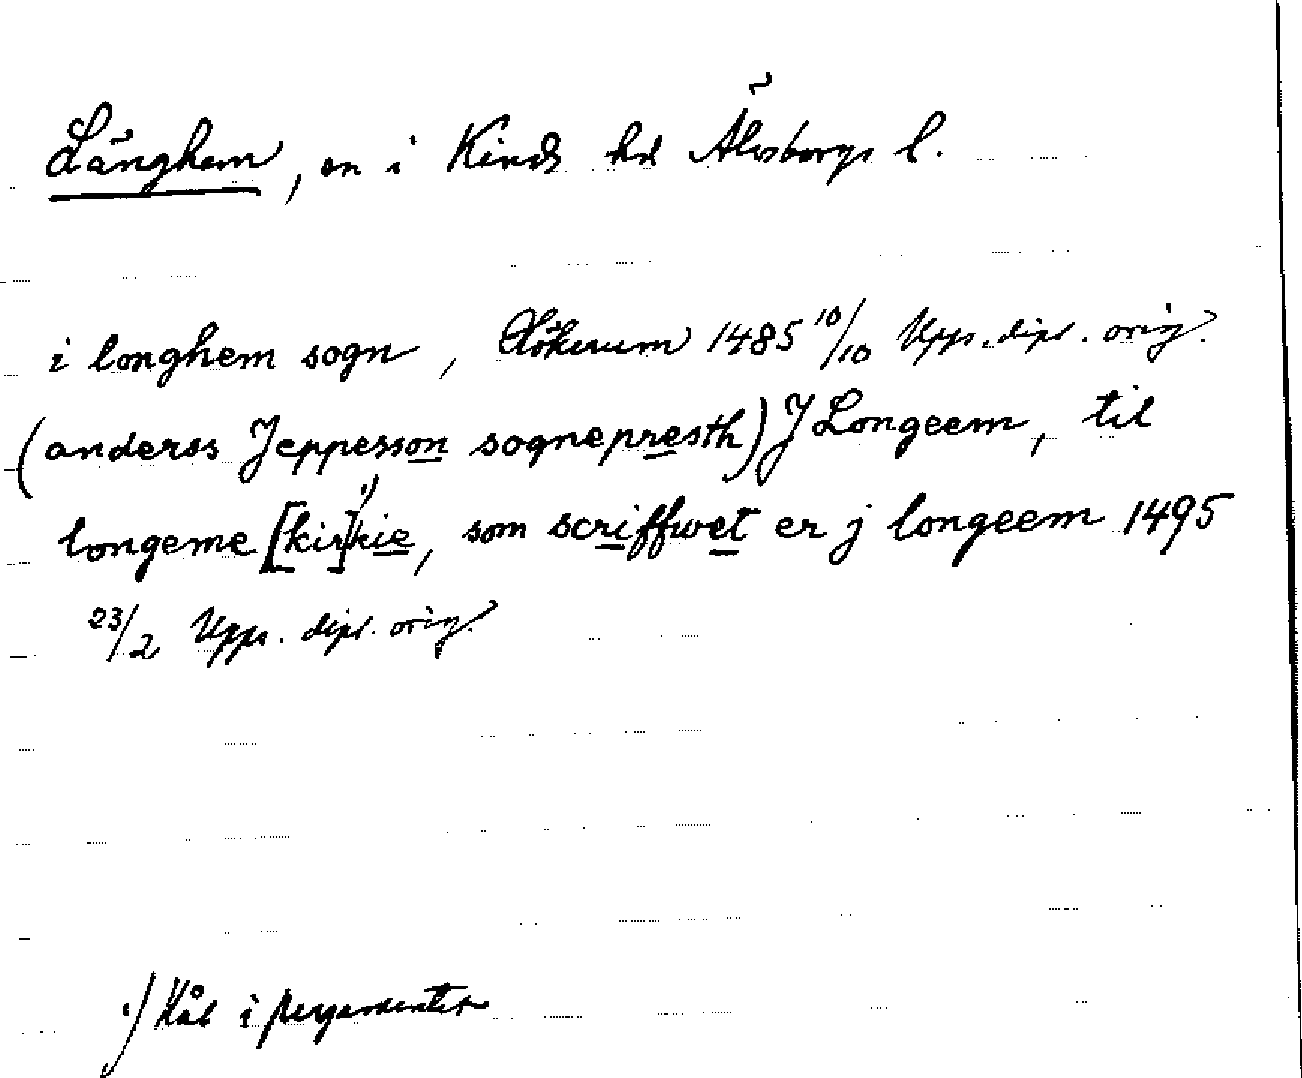 Länghem, sn i Kinds hd Älvsborgs l.
i longhem sogn, Sökerum 1485 10/10 Upps. dipl. orig.
(anderss Jeppesson sognepresth) J Longeem, til
longeme [kir]¹⁾kie, som scriffwet er j longeem 1495
23/2 Upps. dipl. orig.
¹⁾ Hål i pergamentet